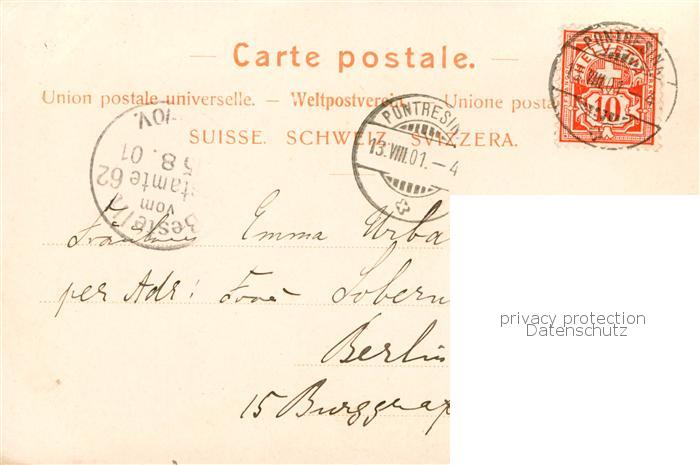 Carte postale.
Union postale universelle. — Weltpostverein. — Unione posta
SUISSE. SCHWEIZ. SVIZZERA.
PONTRESINA
HELVETIA
10
PONTRESINA
13.VIII.01.–4
Bestellt
vom
Postamte 62
5 8. 01
10V.
Fräulein Emma Urba
per Adr: Frau Lobern
Berlin
15 Burggraf
privacy protection
Datenschutz